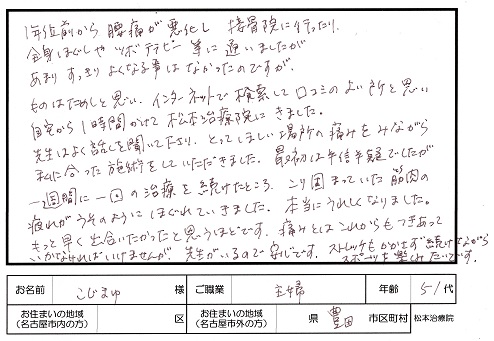 1年位前から腰痛が悪化し 接骨院に行ったり、
全身ほぐしやツボテラピー等に通いましたが
あまりすっきりよくなる事はなかったのですが、
ものはためしと思い、インターネットで検索して口コミのよい所と思い
自宅から1時間かけて松本治療院にきました。
先生はよく話しを聞いて下さり、とってほしい場所の痛みをみながら
私に合った施術をしていただきました。最初は半信半疑でしたが
一週間に一回の治療を続けたところ、こり固まっていた筋肉の
疲れがうそのようにほぐれていきました。本当にうれしくなりました。
もっと早く出合いたかったと思うほどです。痛みとはこれからもつきあって
いかなければいけませんが、先生がいるので安心です。ストレッチもかかさず続けながら
スポーツを楽しみたいです。
お名前 こじまゆ 様 ご職業 主婦 年齢 51代
お住まいの地域
(名古屋市内の方) 区 お住まいの地域
(名古屋市外の方) 県 豊田 市区町村 松本治療院